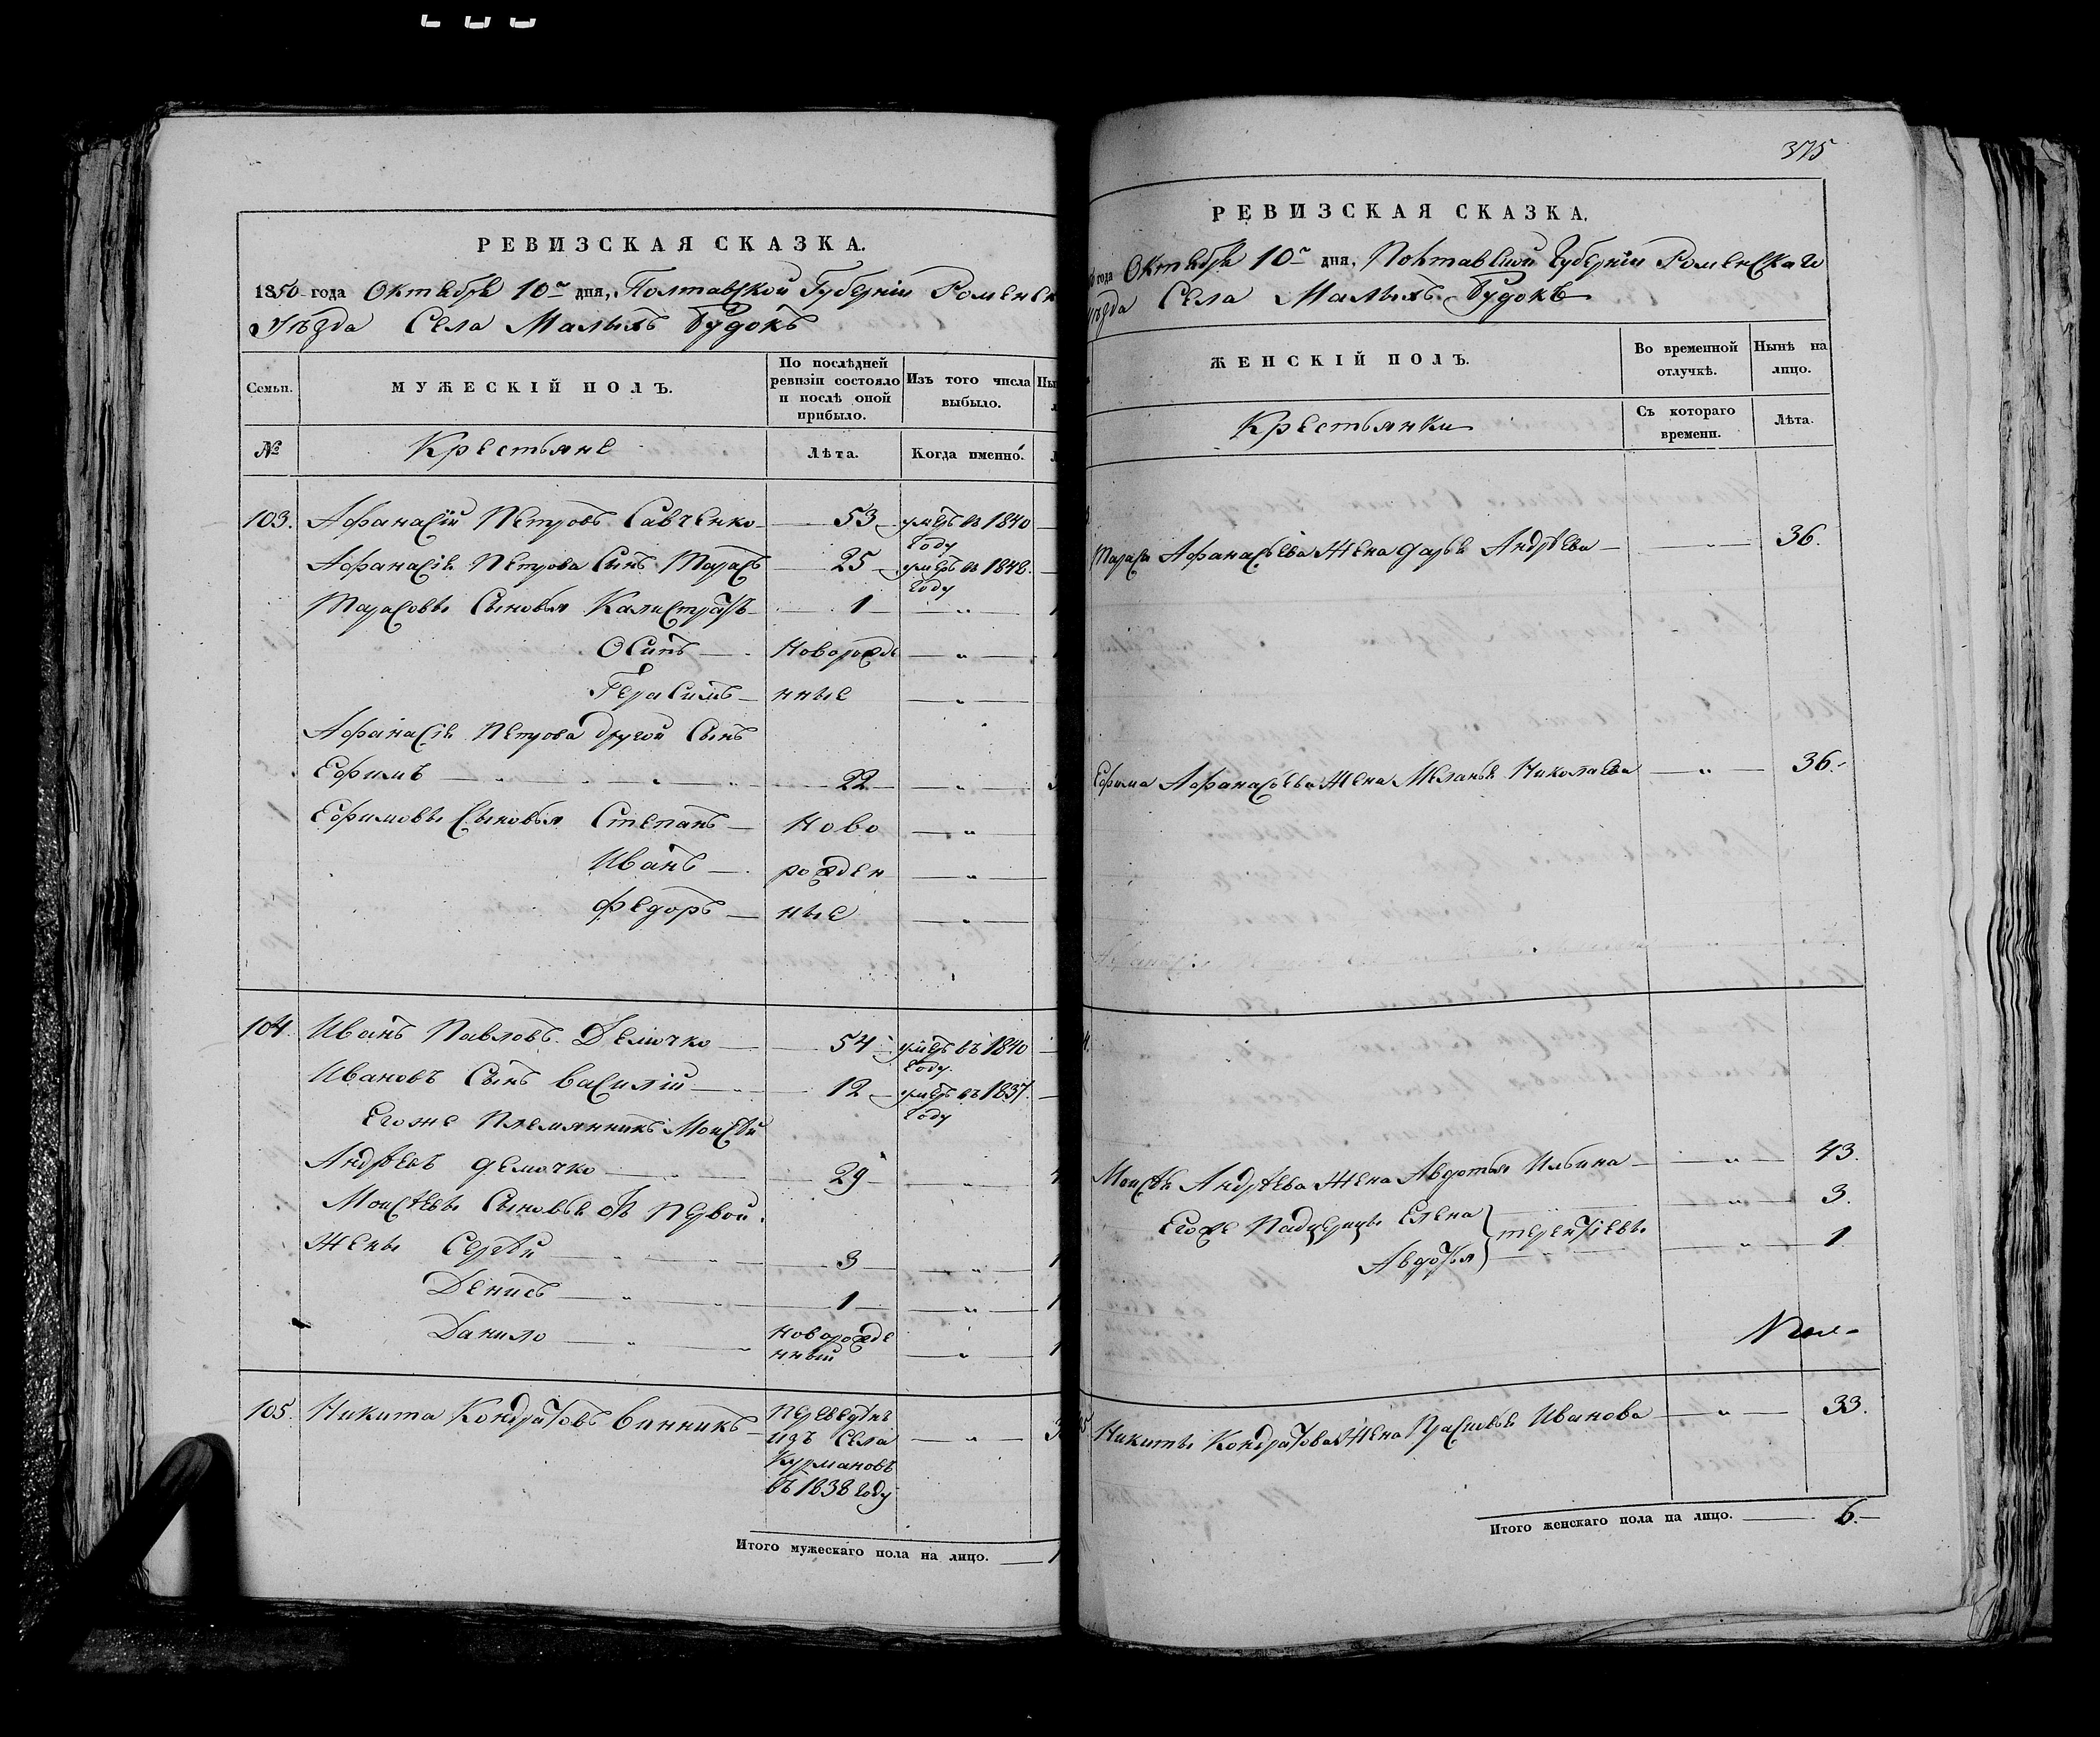 РЕВИЗСКАЯ СКАЗКА.
1850 года Октября 10го дня, Полтавской Губерніи Роменск
Уѣзда Села Малыхъ Будокъ
Семьи.
МУЖЕСКІЙ ПОЛЪ.
По послѣдней ревизіи состояло и послѣ оной прибыло.
Изъ того числа выбыло.
№
Крестьяне
Лѣта.
Когда именно.
103. Афанасій Петровъ Савченко 53 умеръ въ 1840 году
Афанасія Петрова Сынъ Тарасъ 25 умеръ въ 1848. году
Тарасовы Сыновья Калистратъ 1 „
Осипъ Новорожде „
Герасимъ нные „
Афанасія Петрова другой Сынъ
Ефимъ 22 „
Ефимовы Сыновья Степанъ Ново „
Иванъ рожден „
Федоръ ные „
104. Иванъ Павловъ Демочко 54 умеръ въ 1840 году.
Ивановъ Сынъ Василій 12 умеръ въ 1837. году
Егоже Племянникъ Моисей
Андреевъ Демочко 29 „
Моисѣевы Сыновья отъ первой
Жены Сергѣй 3 „
Денисъ 1 „
Данило Новорожде нный „
105. Никита Кондратовъ Винникъ Переведенъ „
изъ Села
Курмановъ
въ 1838 году
Итого мужескаго пола на лицо.
375
РЕВИЗСКАЯ СКАЗКА.
года Октября 10го дня, Полтавской Губерніи Роменскаго
Уѣзда Села Малыхъ Будокъ
ЖЕНСКІЙ ПОЛЪ.
Во временной отлучкѣ.
Нынѣ на лицо.
Крестьянки
Съ котораго времени.
Лѣта.
Тараса Афанасьева Жена Дарья Андрѣева „ 36.
Ефима Афанасьева Жена Меланья Николаева „ 36.
Моисѣя Андрѣева Жена Авдотья Ильина „ 43.
Егоже Падчерицы Елена } Терентіевы „ 3.
Авдотья „ 1.
Никиты Кондратова Жена Прасковья Иванова „ 33.
Итого женскаго пола на лицо. 6.